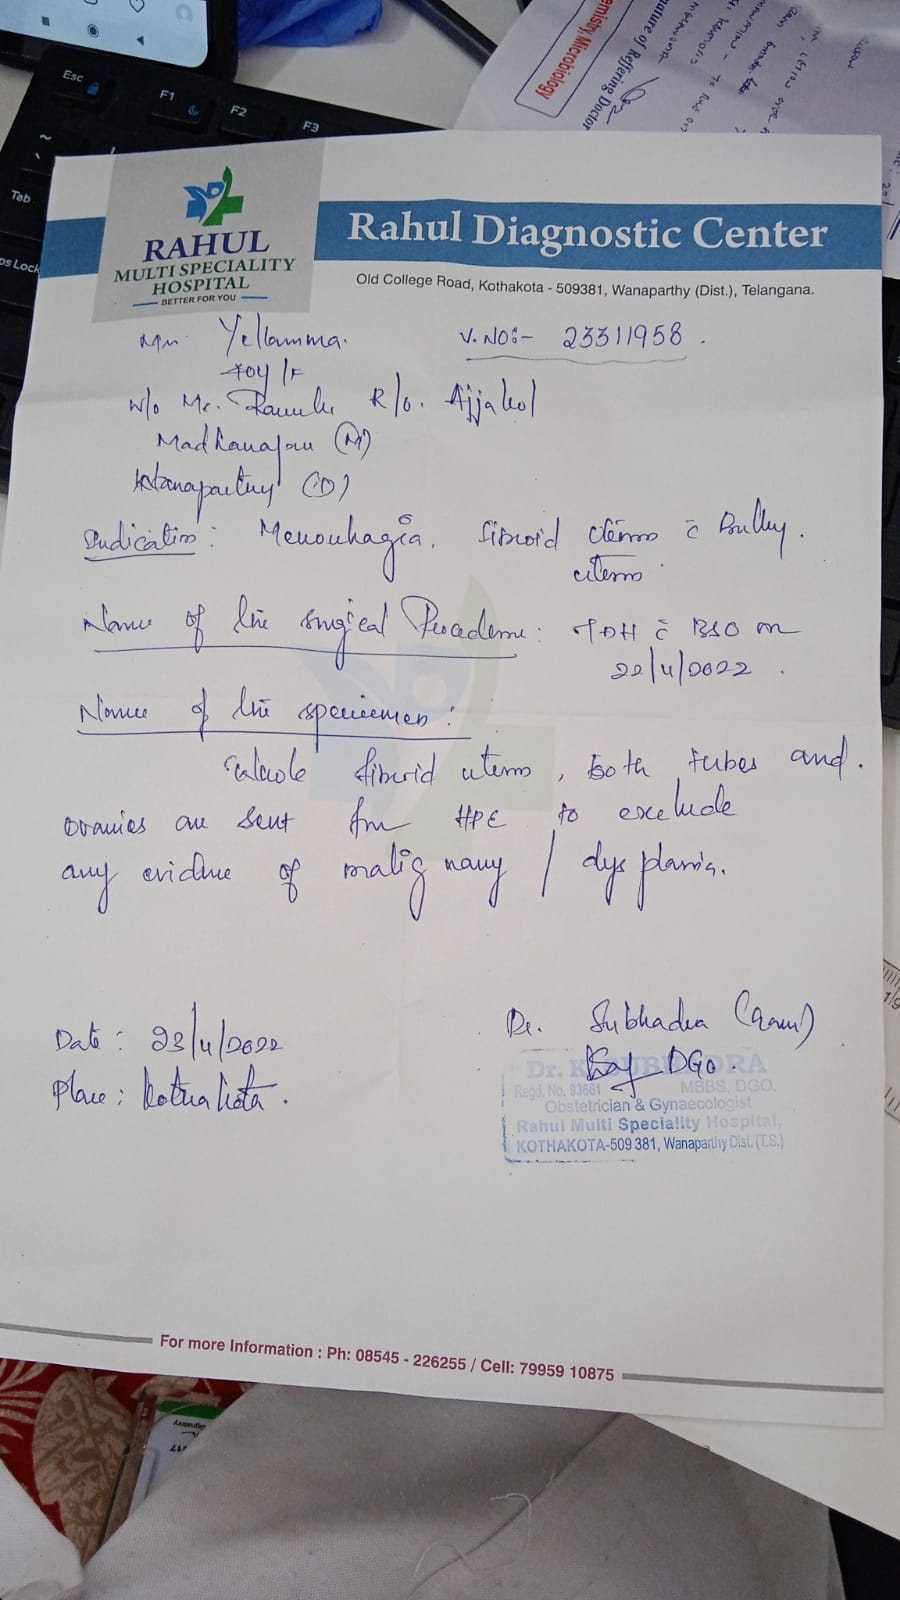 Esc
F1
F2
F3
Tab
ps Lock
emistry, Microbiology
nature of Reffering Doctor
RAHUL
MULTI SPECIALITY
HOSPITAL
BETTER FOR YOU
Rahul Diagnostic Center
Old College Road, Kothakota - 509381, Wanaparthy (Dist.), Telangana.
Yellamma.
V. NO:- 23311958.
40y/F
w/o Mr. R/o. Ajjakol
(M)
Wanaparthy (D)
Indication: Menorrhagia, fibroid uterus c̄ Bulky.
uterus
Name of the surgical Procedure: TAH c̄ BSO on
22/4/2022.
Name of the specimen:
Whole fibroid uterus, both tubes and.
ovaries are sent for HPE to exclude
any evidence of malignancy / dysplasia.
Date: 23/4/2022
Place: Kothakota.
Dr. Subhadra
DGO.
Dr. K SUBHADRA
Regd. No. 93661 MBBS, DGO.
Obstetrician & Gynaecologist
Rahul Multi Speciality Hospital,
KOTHAKOTA-509 381, Wanaparthy Dist. (T.S.)
For more Information : Ph: 08545 - 226255 / Cell: 79959 10875